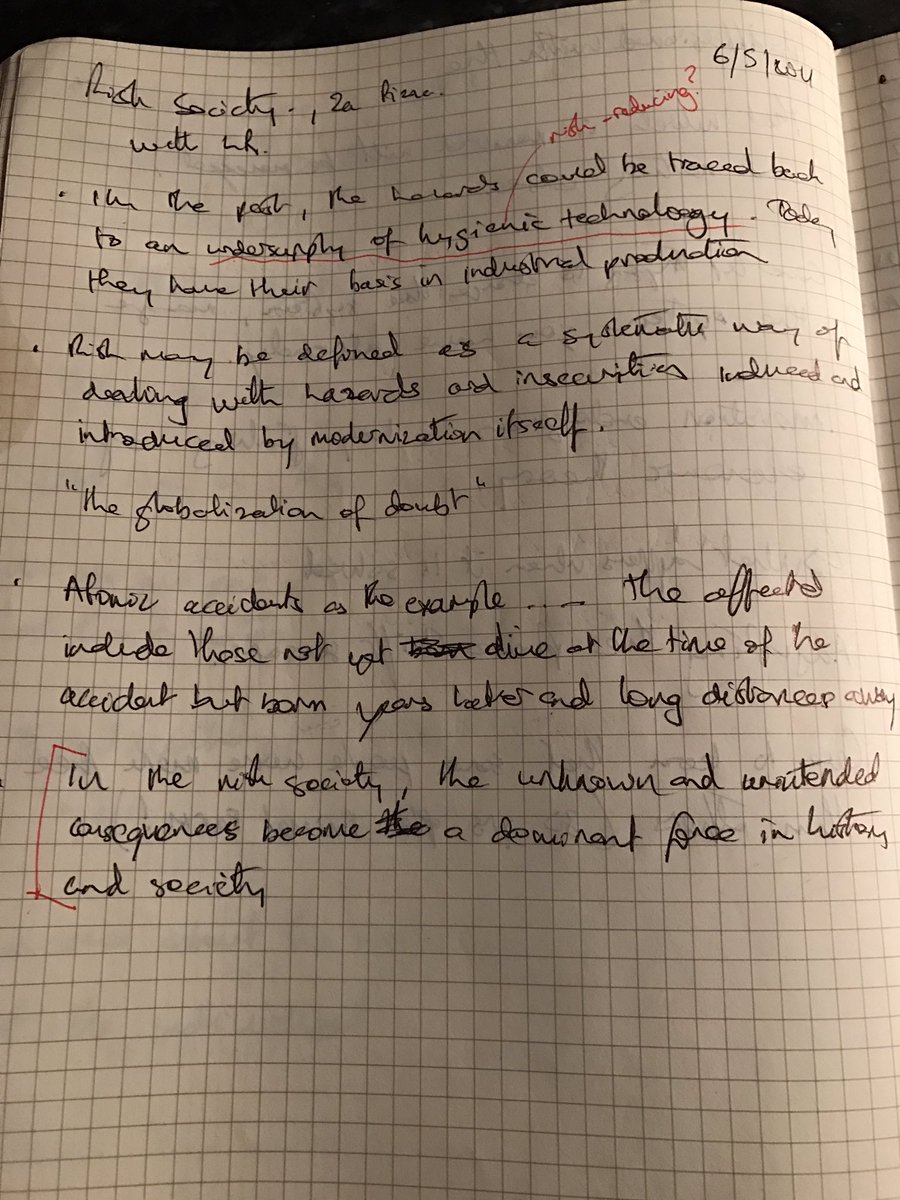 6/5/2011
Risk Society., 2a
with
risk-reducing?
• In the past, the hazards could be traced back
to an undersupply of hygienic technology. Today
they have their basis in industrial production
• Risk may be defined as a systematic way of
dealing with hazards and insecurities induced and
introduced by modernization itself.
"the globalization of doubt"
• Atomic accidents as the example .... the affected
include those not yet alive at the time of the
accident but born years later and long distances away
In the risk society, the unknown and unintended
consequences become a dominant force in history
and society